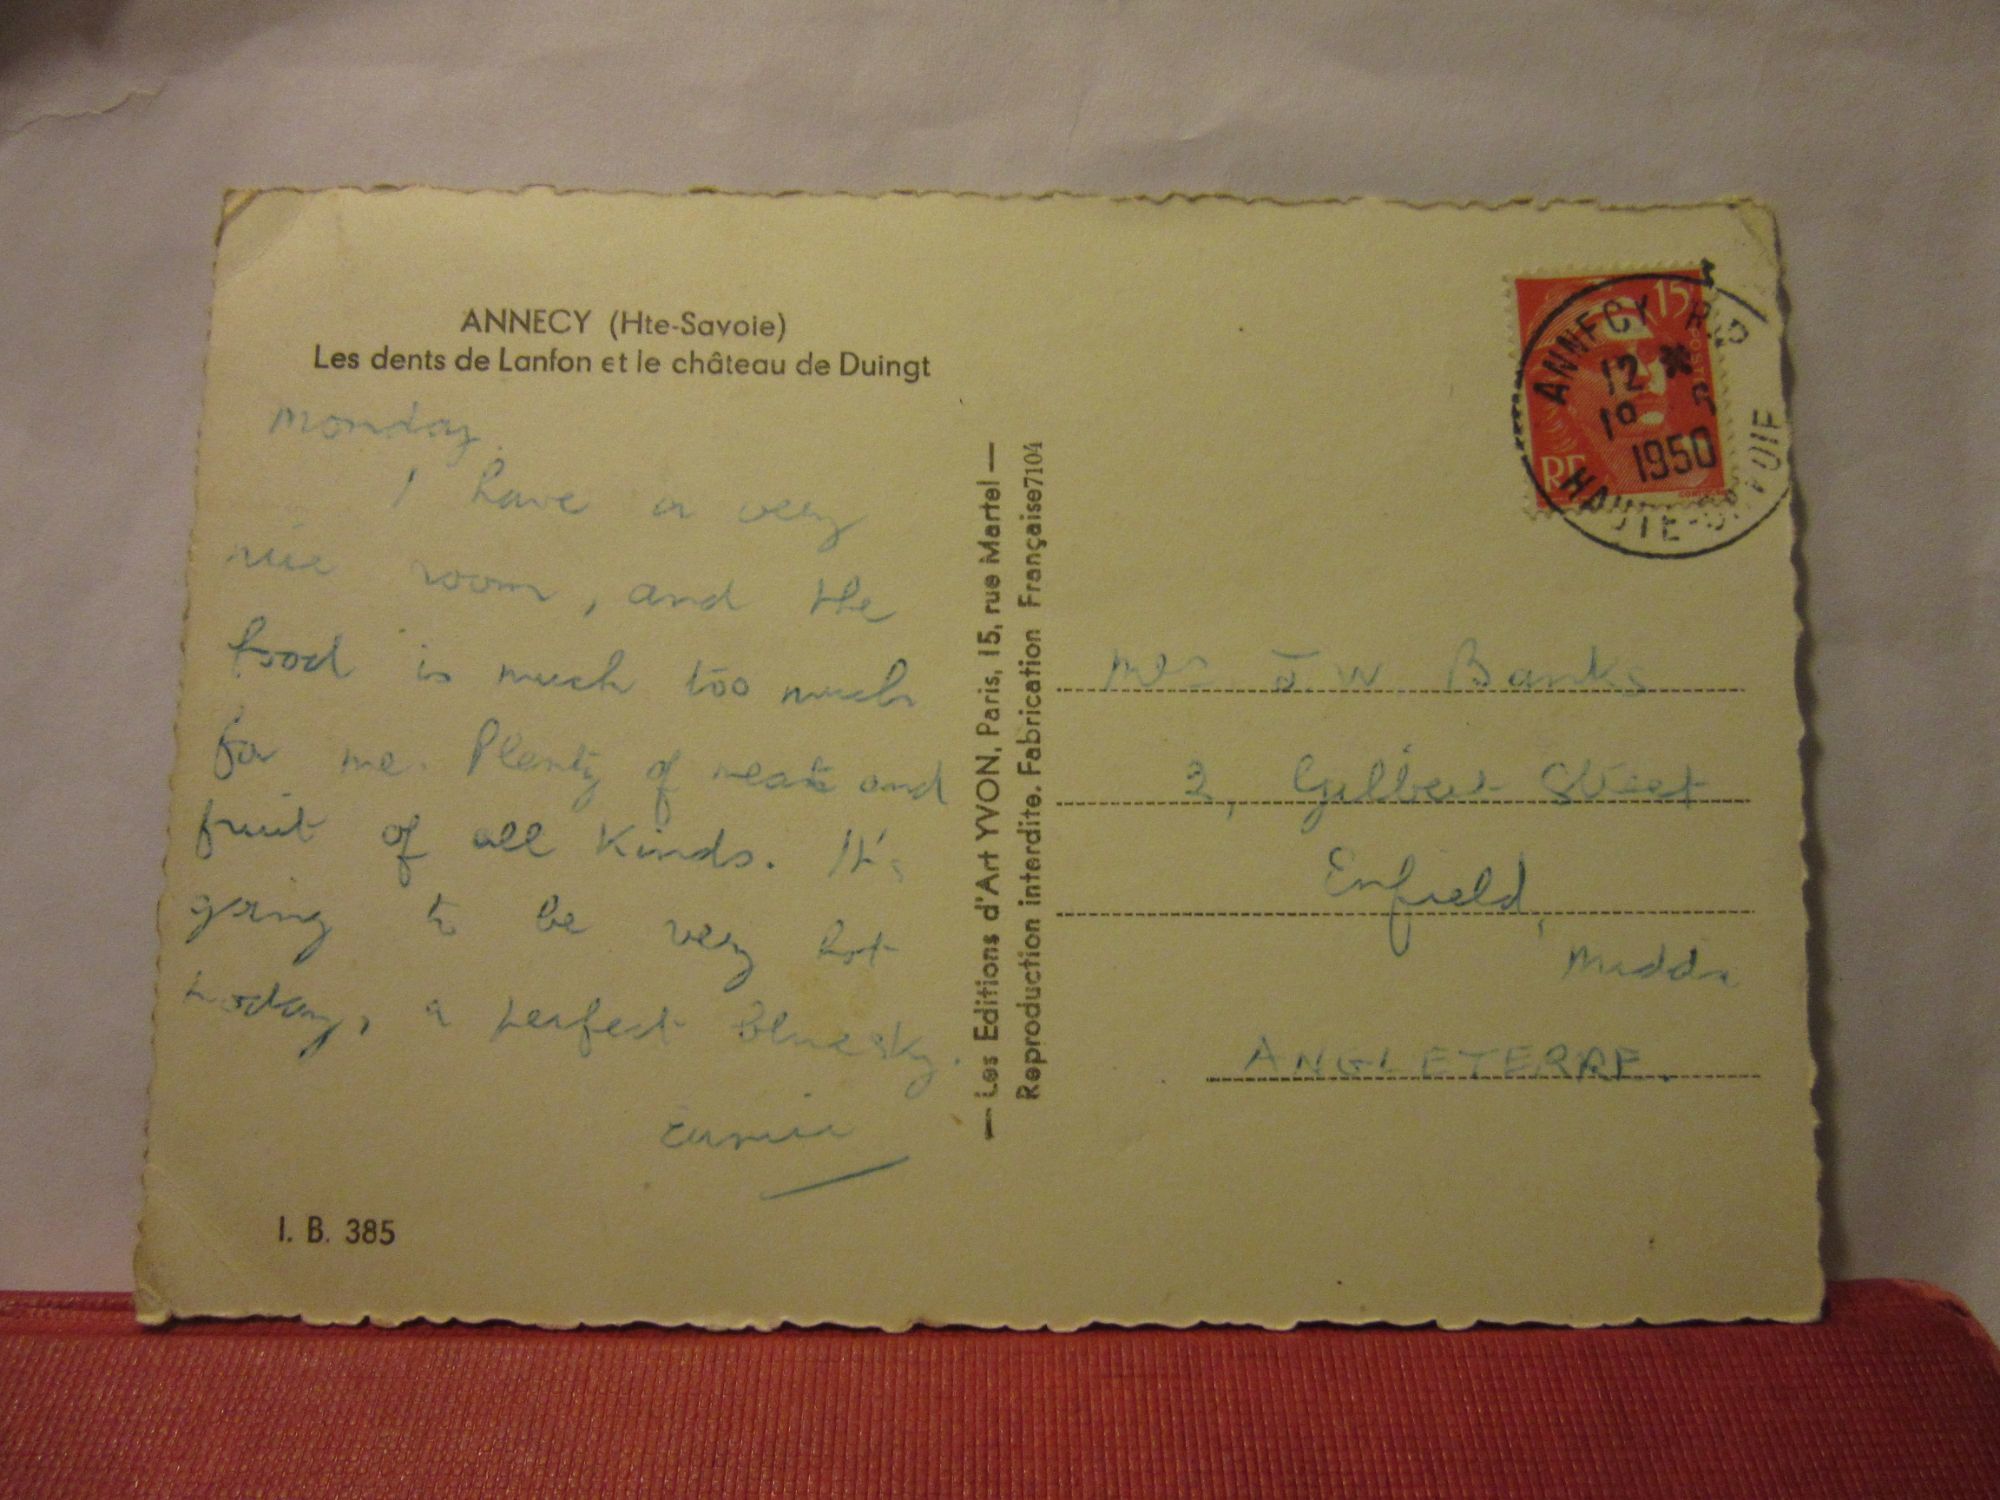 ANNECY (Hte-Savoie)
Les dents de Lanfon et le château de Duingt
Monday.
I have a very
nice room, and the
food is much too much
for me. Plenty of meat and
fruit of all kinds. It's
going to be very hot
today, a perfect blue sky.
I. B. 385
— Les Editions d'Art YVON, Paris, 15, rue Martel —
Reproduction interdite. Fabrication Française 7104
15
POSTES
RF
ANNECY R.P
12 *
1950
HAUTE-SAVOIE
Mrs. J. W Banks
2, Gilbert Street
Enfield,
Middx
ANGLETERRE.